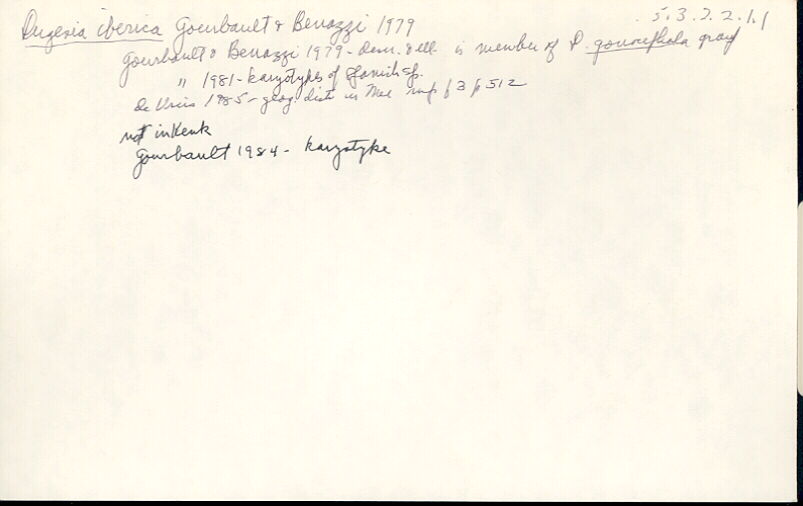 Dugesia iberica Gourbault & Benazzi 1979 5.3.2.2.1.1
Gourbault & Benazzi 1979 - is member of D. gonocephala group
" 1981 - karyotypes of Spanish sp.
de Vries 1985 - geog. distr. in Med map f 3 p 512
not in Kenk
Gourbault 1984 - karyotype